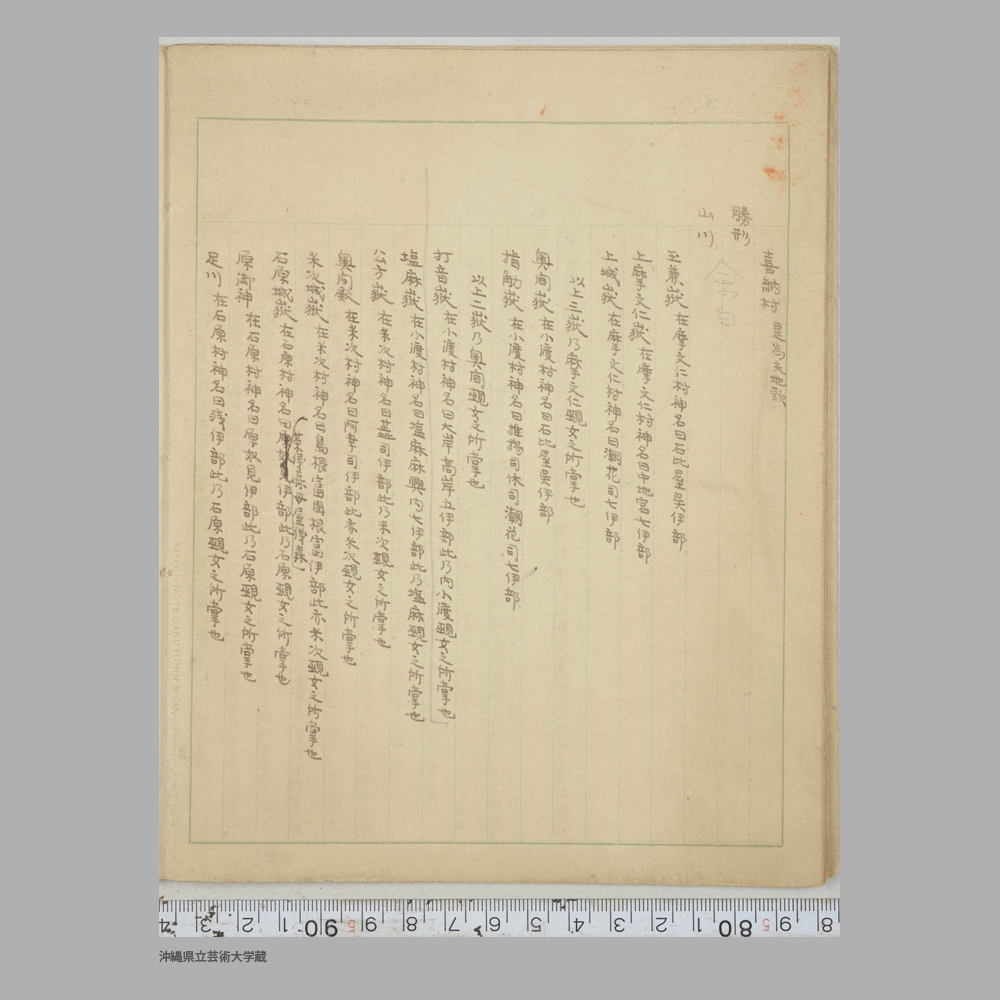 喜納村 是為夫地頭
勝形
山川
玉兼嶽 在摩文仁村神名曰石比屋吴伊部
上摩文仁嶽 在摩文仁村神名曰中地宮七伊部
上城嶽 在麻文仁村神名曰潮花司七伊部
以上三嶽乃摩文仁親女之所掌也
奥間嶽 在小渡村神名曰石比屋吴伊部
指觔嶽 在小渡村神名曰推揚司休司潮花司七伊部
以上二嶽乃奥間親女之所掌也
打音嶽 在小渡村神名曰大岸高岸五伊部此乃内小渡親女之所掌也
塩麻嶽 在小渡村神名曰塩麻麻興内七伊部此乃塩麻親女之所掌也
公方嶽 在米次村神名曰蓋司伊部此乃米次親女之所掌也
奥间殿 在米次村神名曰阿韋司伊部此亦米次親女之所掌也
米次城嶽 在米次村神名曰島根富國根富伊部此亦米次親女之所掌也
石原城嶽 在石原村神名曰伊部此乃石原親女之所掌也
原御神 在石原村神名曰原奴見伊部此乃石原親女之所掌也
足川 在石原村神名曰残伊部此乃石原親女之所掌也
4 3 2 1 90 9 8 7 6 5 4 3 2 1 80 9 8
沖縄県立芸術大学蔵